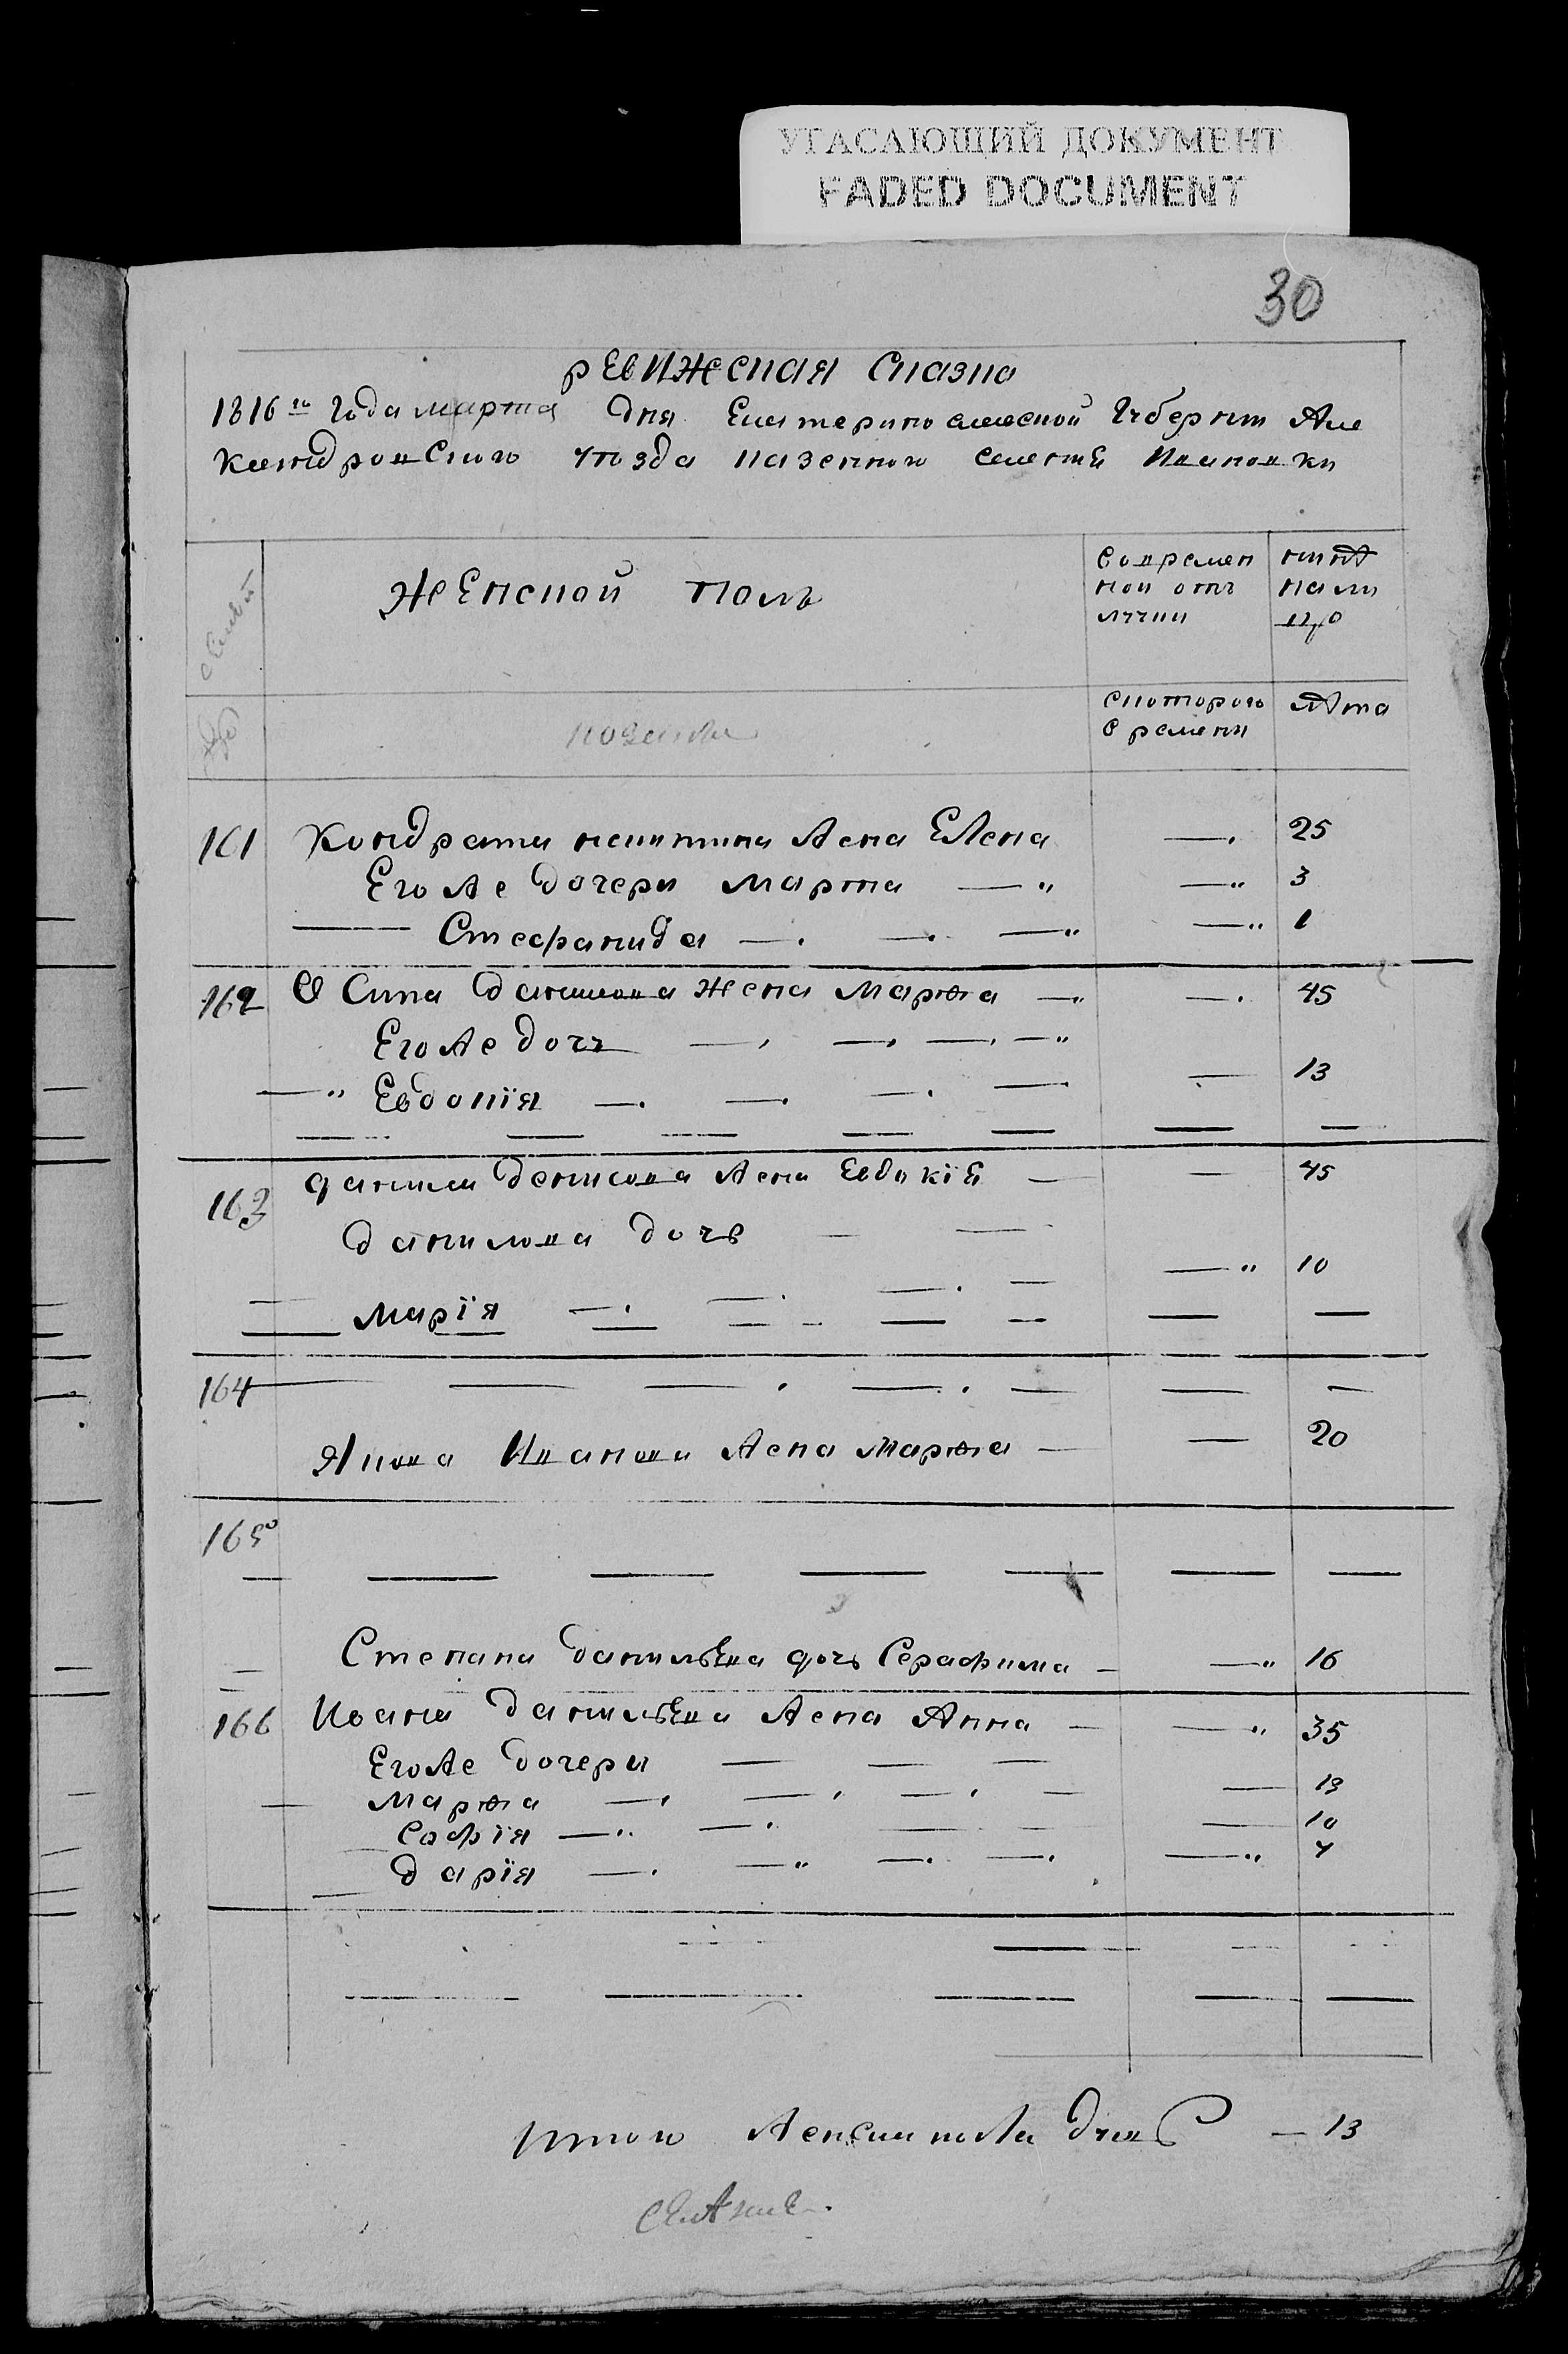 УГАСАЮЩИЙ ДОКУМЕНТ
FADED DOCUMENT
30
ревижская сказка
1816 го года марта дня Екатеринославской губернии Але
ксендровского уезда казенного селения Ивановки
семьй
женской пол
во времен
ной отъ
лучки
ныне
нали
цо
скоторого
времени
лета
161 Кондратия никитина жена Елена 25
Его же дочери марта 3
Стефанида 1
162 Осипа данилова жена марѳа 45
Его же дочь
Евдокія 13
163 данилы денисова жена Евдокіе 45
данилова дочь
10
марія
164
Якова Иванова жена марѳа 20
165
Степана данильева дочь Серафима 16
166 Ивана данильева жена Анна 35
Его же дочери
марѳа 13
софія 10
дарія 4
итого женска пола душъ 13